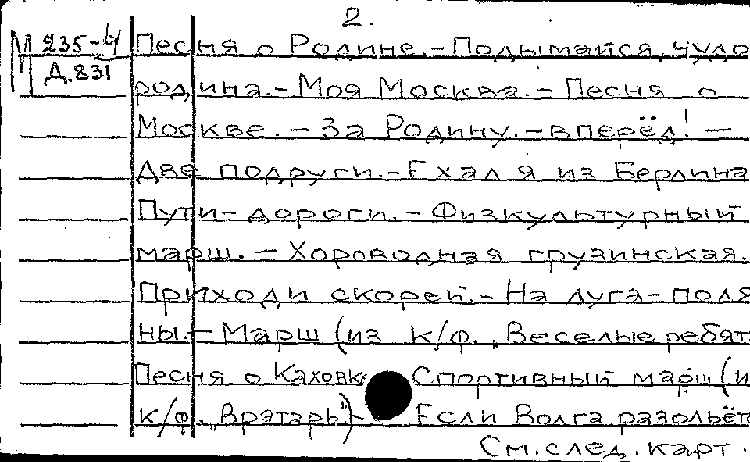 2.
М 235-4
Д.831
Песня о Родине.-Подымайся, чудо
родина.-Моя Москва.-Песня о
Москве.-За Родину.-вперёд!-
Две подруги.-Ехал я из Берлина
Пути-дороги.-Физкультурный
марш.-Хороводная грузинская.
Приходи скорей.-На луга-поля
ны.-Марш (из к/ф. „Веселые ребят
Песня о Каховк Спортивный марш (и
к/ф. „Вратарь")- Если Волга разольёт
См. след. карт.